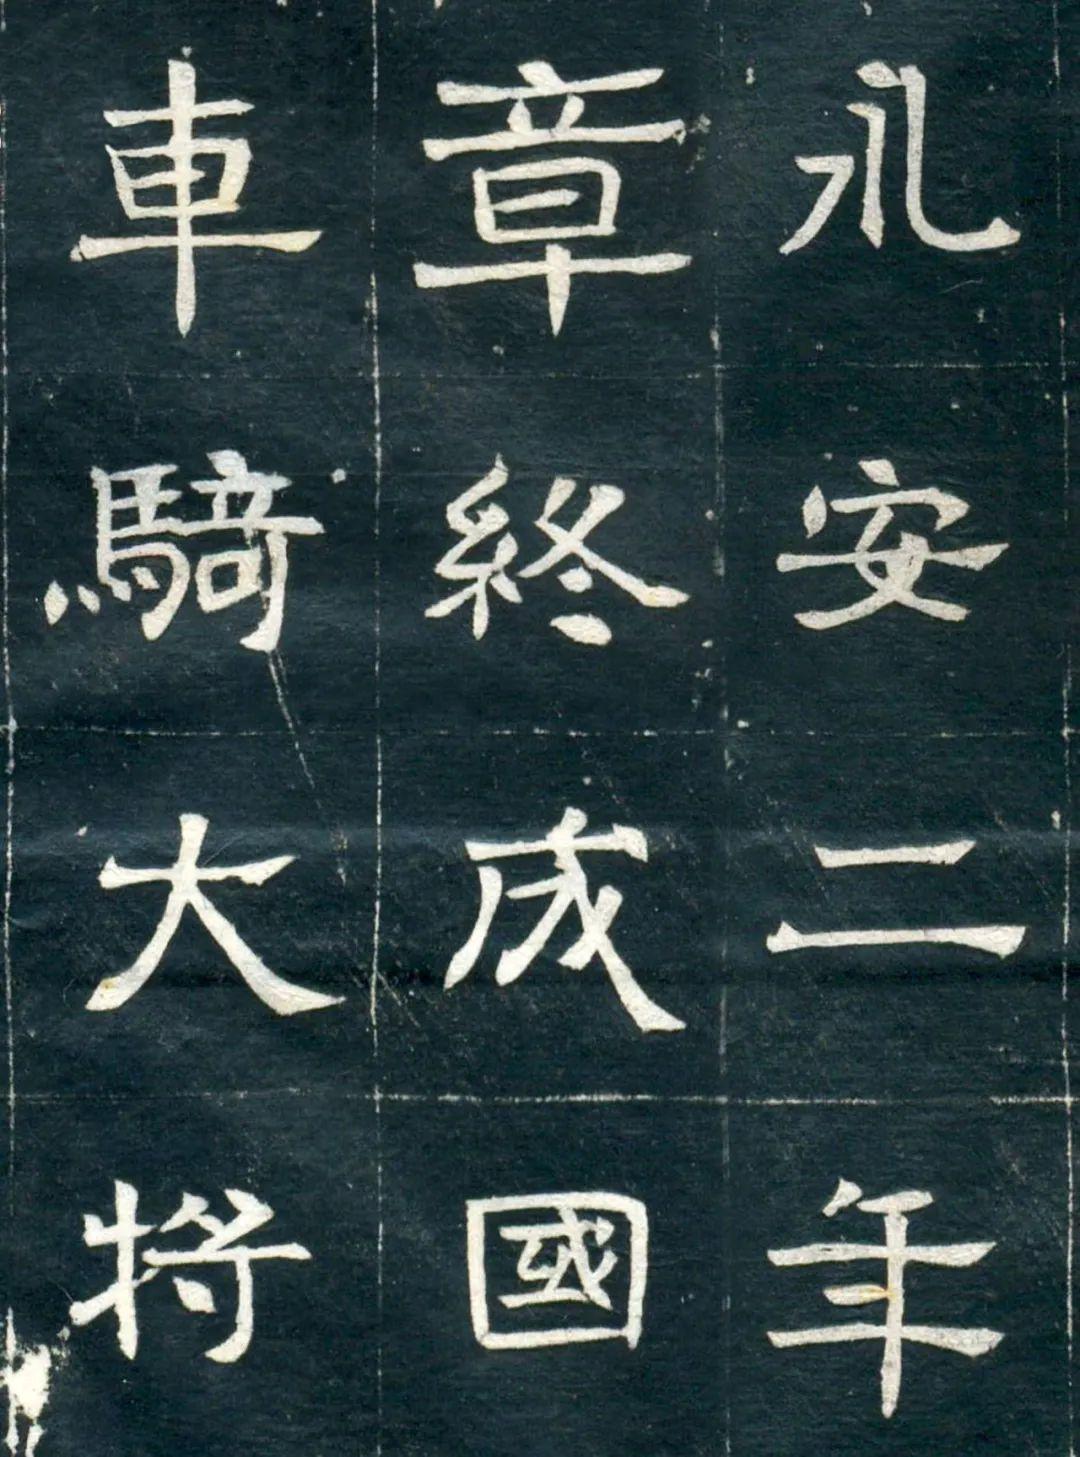 永安二年
章終成國
車騎大將